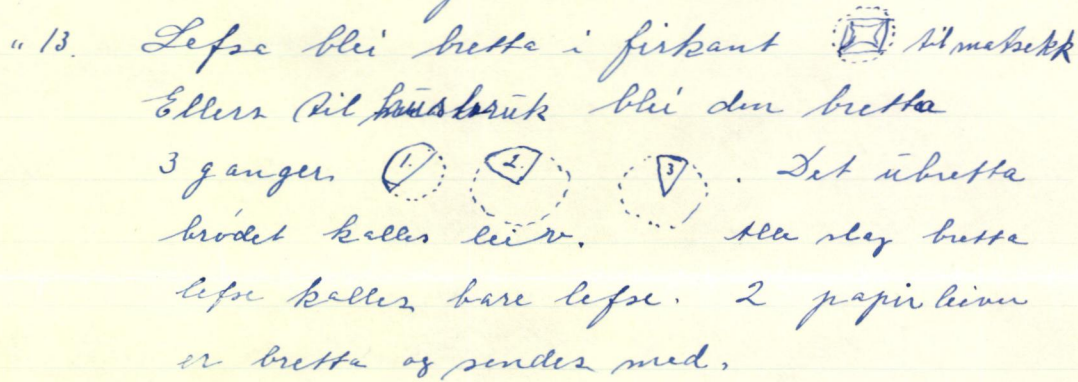 " 13. Lefsa blei bretta i firkant til matsekk
Ellers til husbruk blei den bretta
3 ganger 1. 2. 3 . Det ubretta
brødet kalles leiv. Alle slag bretta
lefse kalles bare lefse. 2 papirleiver
er bretta og sendes med.